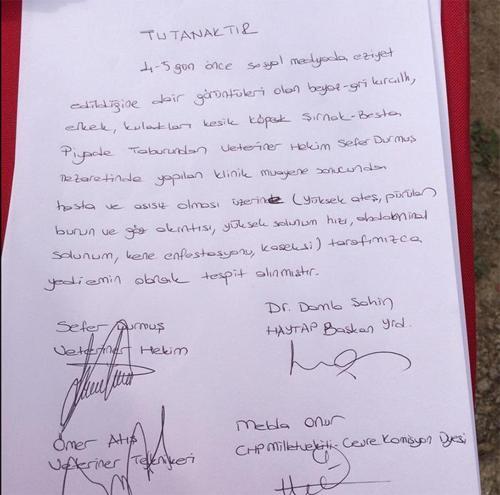 TUTANAKTIR
4-5 gün önce sosyal medyada eziyet
edildiğine dair görüntüleri olan beyaz-gri kırçıllı,
erkek, kulakları kesik köpek Şırnak-Besta
Piyade Taburundan Veteriner Hekim Sefer Durmuş
nezaretinde yapılan klinik muayene sonucunda
hasta ve aşısız olması üzerine (yüksek ateş, pürülan
burun ve göz akıntısı, yüksek solunum hızı, abdominal
solunum, kene enfestasyonu, kaşeksi) tarafımızca
yediemin olarak tespit alınmıştır.
Sefer Durmuş
Veteriner Hekim
Dr. Damla Şahin
HAYTAP Başkan Yrd.
Ömer Atış
Veteriner Teknikeri
Melda Onur
CHP Milletvekili-Çevre Komisyon Üyesi